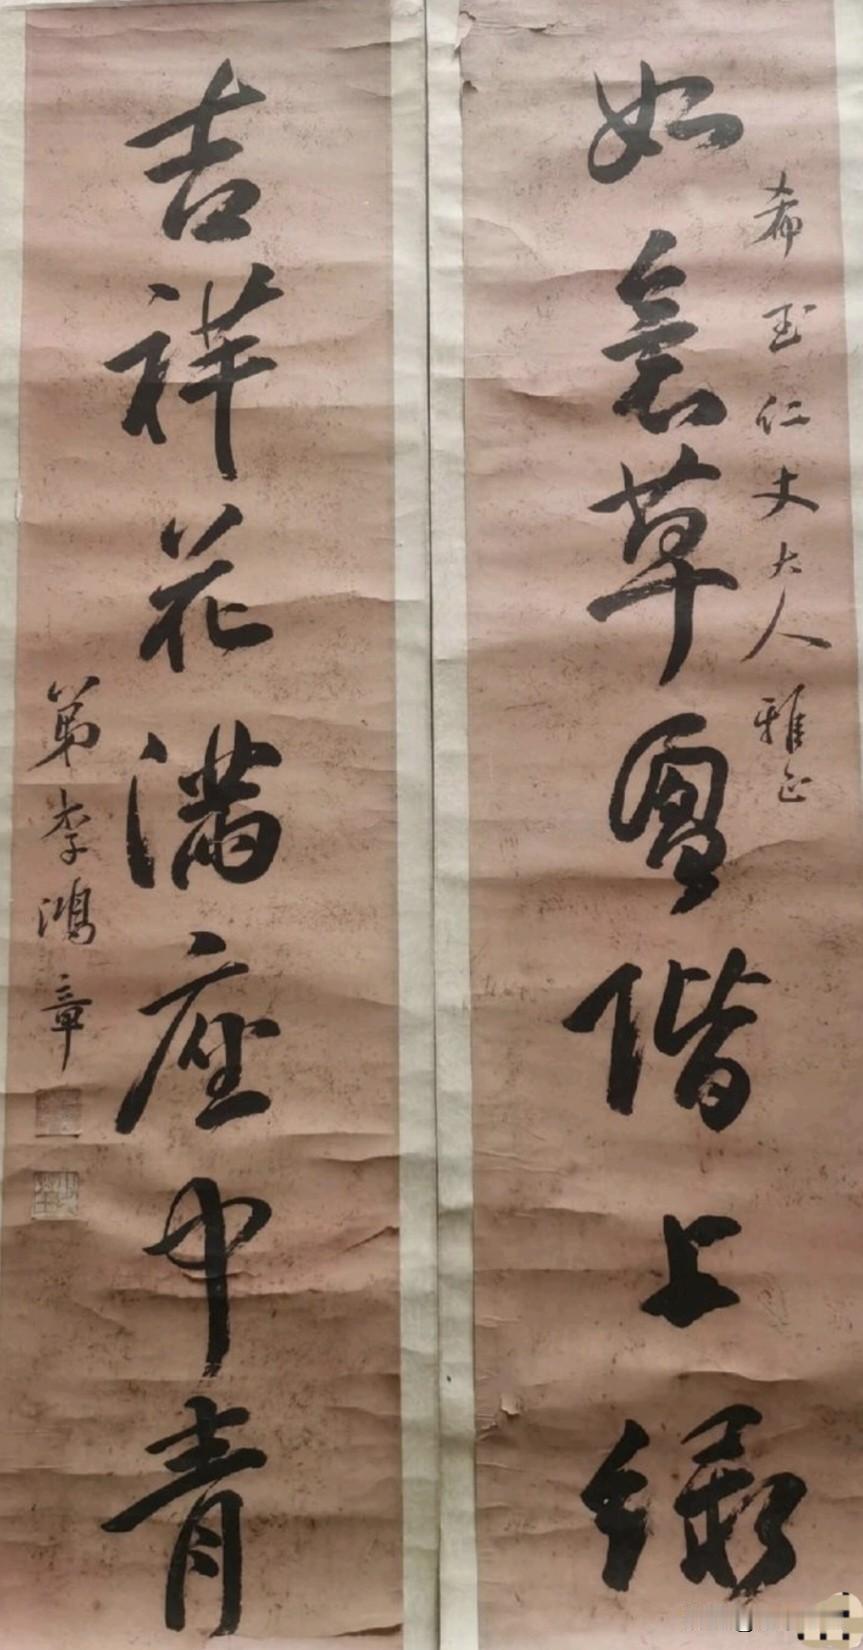 希玉仁丈大人雅正
如意草階上綠
吉祥花滿座中青
弟李鴻章